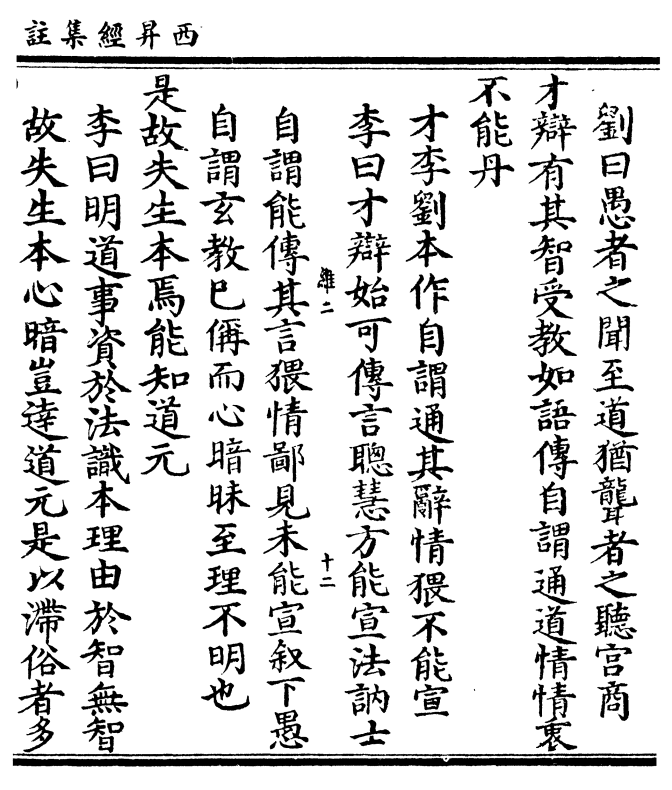 西昇經集註
劉曰愚者之聞至道猶聾者之聽宮商
才辯有其智受教如語傳自謂通道情情衷
不能丹
才李劉本作自謂通其辭情猥不能宣
李曰才辯始可傳言聰慧方能宣法訥士
維二 十二
自謂能傳其言猥情鄙見未能宣叙下愚
自謂玄教已偁而心暗昧至理不明也
是故失生本焉能知道元
李曰明道事資於法識本理由於智無智
故失生本心暗豈達道元是以滯俗者多